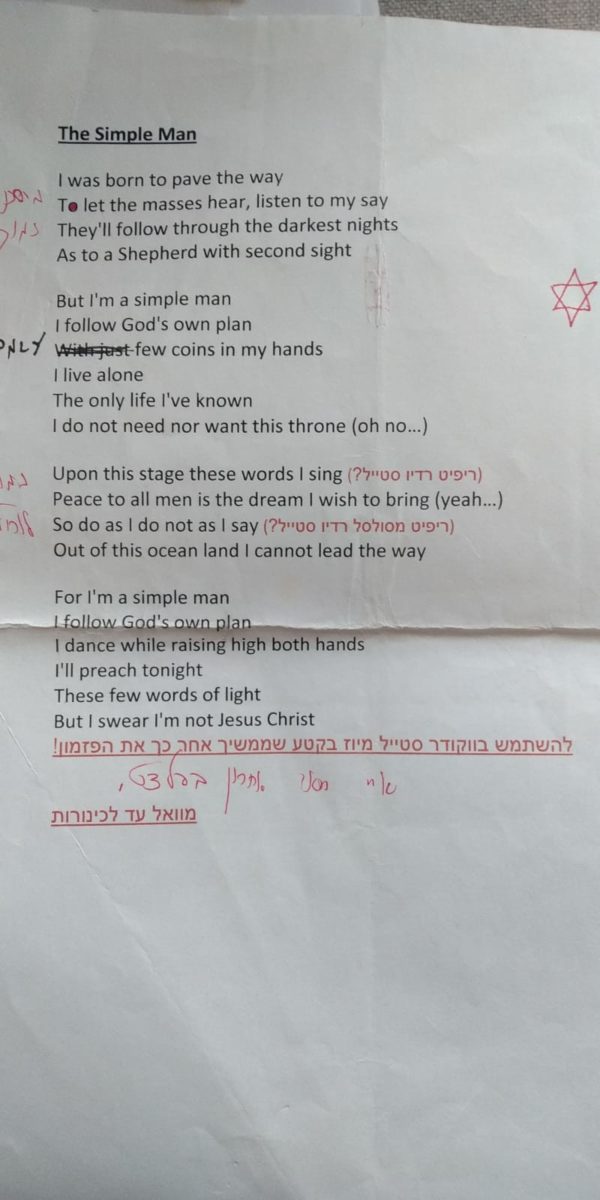 The Simple Man
I was born to pave the way
To let the masses hear, listen to my say
נמוך They'll follow through the darkest nights
As to a Shepherd with second sight
But I'm a simple man
I follow God's own plan
ONLY With just few coins in my hands
I live alone
The only life I've known
I do not need nor want this throne (oh no...)
Upon this stage these words I sing (ריפיט רדיו סטייל?)
Peace to all men is the dream I wish to bring (yeah...)
So do as I do not as I say (ריפיט מסולסל רדיו סטייל?)
Out of this ocean land I cannot lead the way
For I'm a simple man
I follow God's own plan
I dance while raising high both hands
I'll preach tonight
These few words of light
But I swear I'm not Jesus Christ
להשתמש בווקודר סטייל מיוז בקטע שממשיך אחר כך את הפזמון!
מוואל עד לכינורות